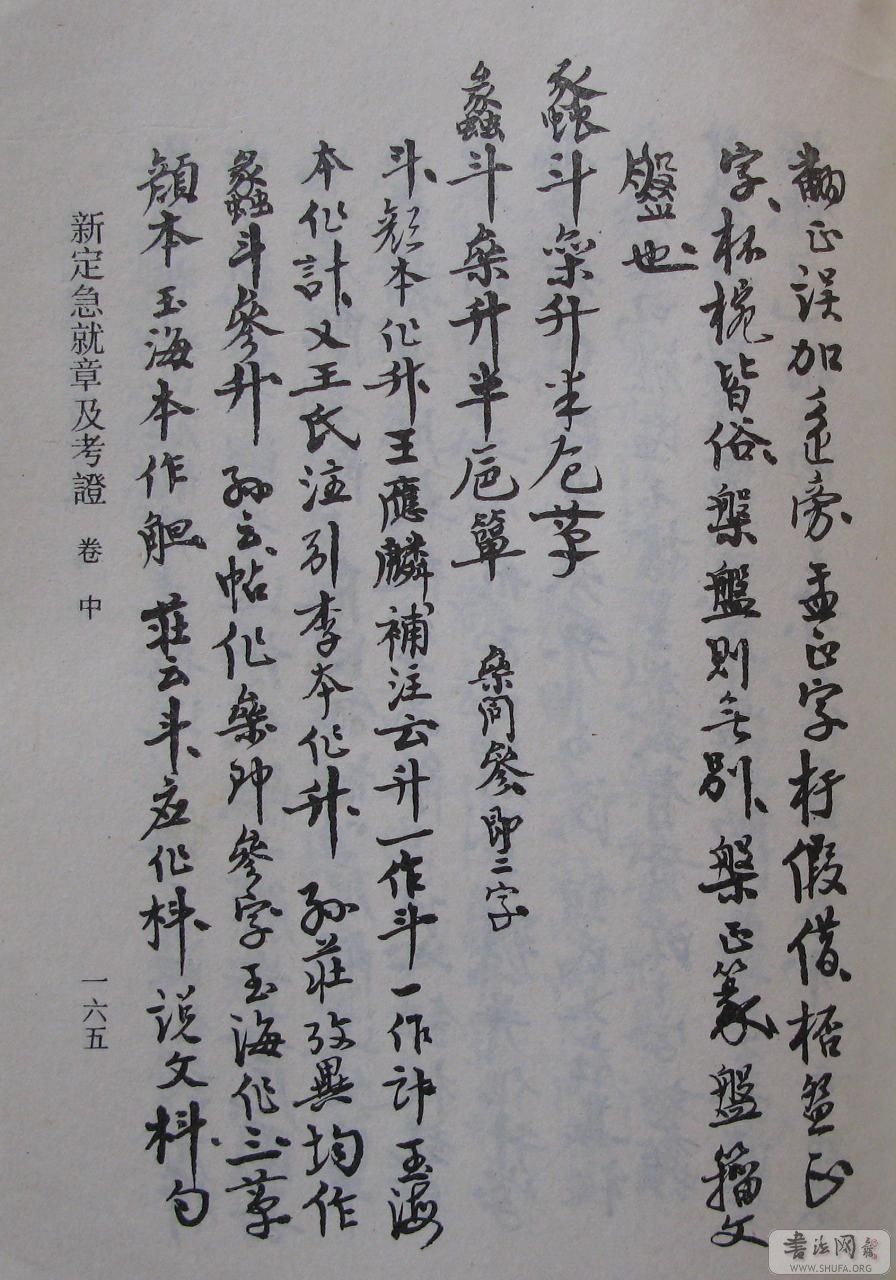 正誤加走旁盂正字杅假借桮盌正
字杯椀皆俗槃盤則無別槃正篆盤籀文
盤也
蠡斗參升半卮簞
蠡斗桼升半卮簞 桼同參即二字
斗顏本作升王應麟補注云升一作斗一作計玉海
本作計又王氏注引李本作升 孫莊攷異均作
蠡斗參升 孫云帖作桼即參字玉海作三草
顏本玉海本作觛 莊云斗應作枓說文枓勺
新定急就章及考證 卷中
一六五
書法网
WWW.SHUFA.ORG